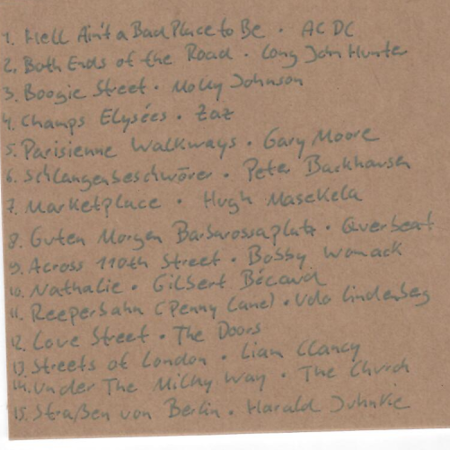 1. Hell Ain't a Bad Place to Be · AC DC
2. Both Ends of the Road · Long John Hunter
3. Boogie Street · Molly Johnson
4. Champs Elysées · Zaz
5. Parisienne Walkways · Gary Moore
6. Schlangenbeschwörer · Peter Backhausen
7. Marketplace · Hugh Masekela
8. Guten Morgen Barbarossaplatz · Querbeat
9. Across 110th Street · Bobby Womack
10. Nathalie · Gilbert Bécaud
11. Reeperbahn (Penny Lane) · Udo Lindenberg
12. Love Street · The Doors
13. Streets of London · Liam Clancy
14. Under The Milky Way · The Church
15. Straßen von Berlin · Harald Juhnke